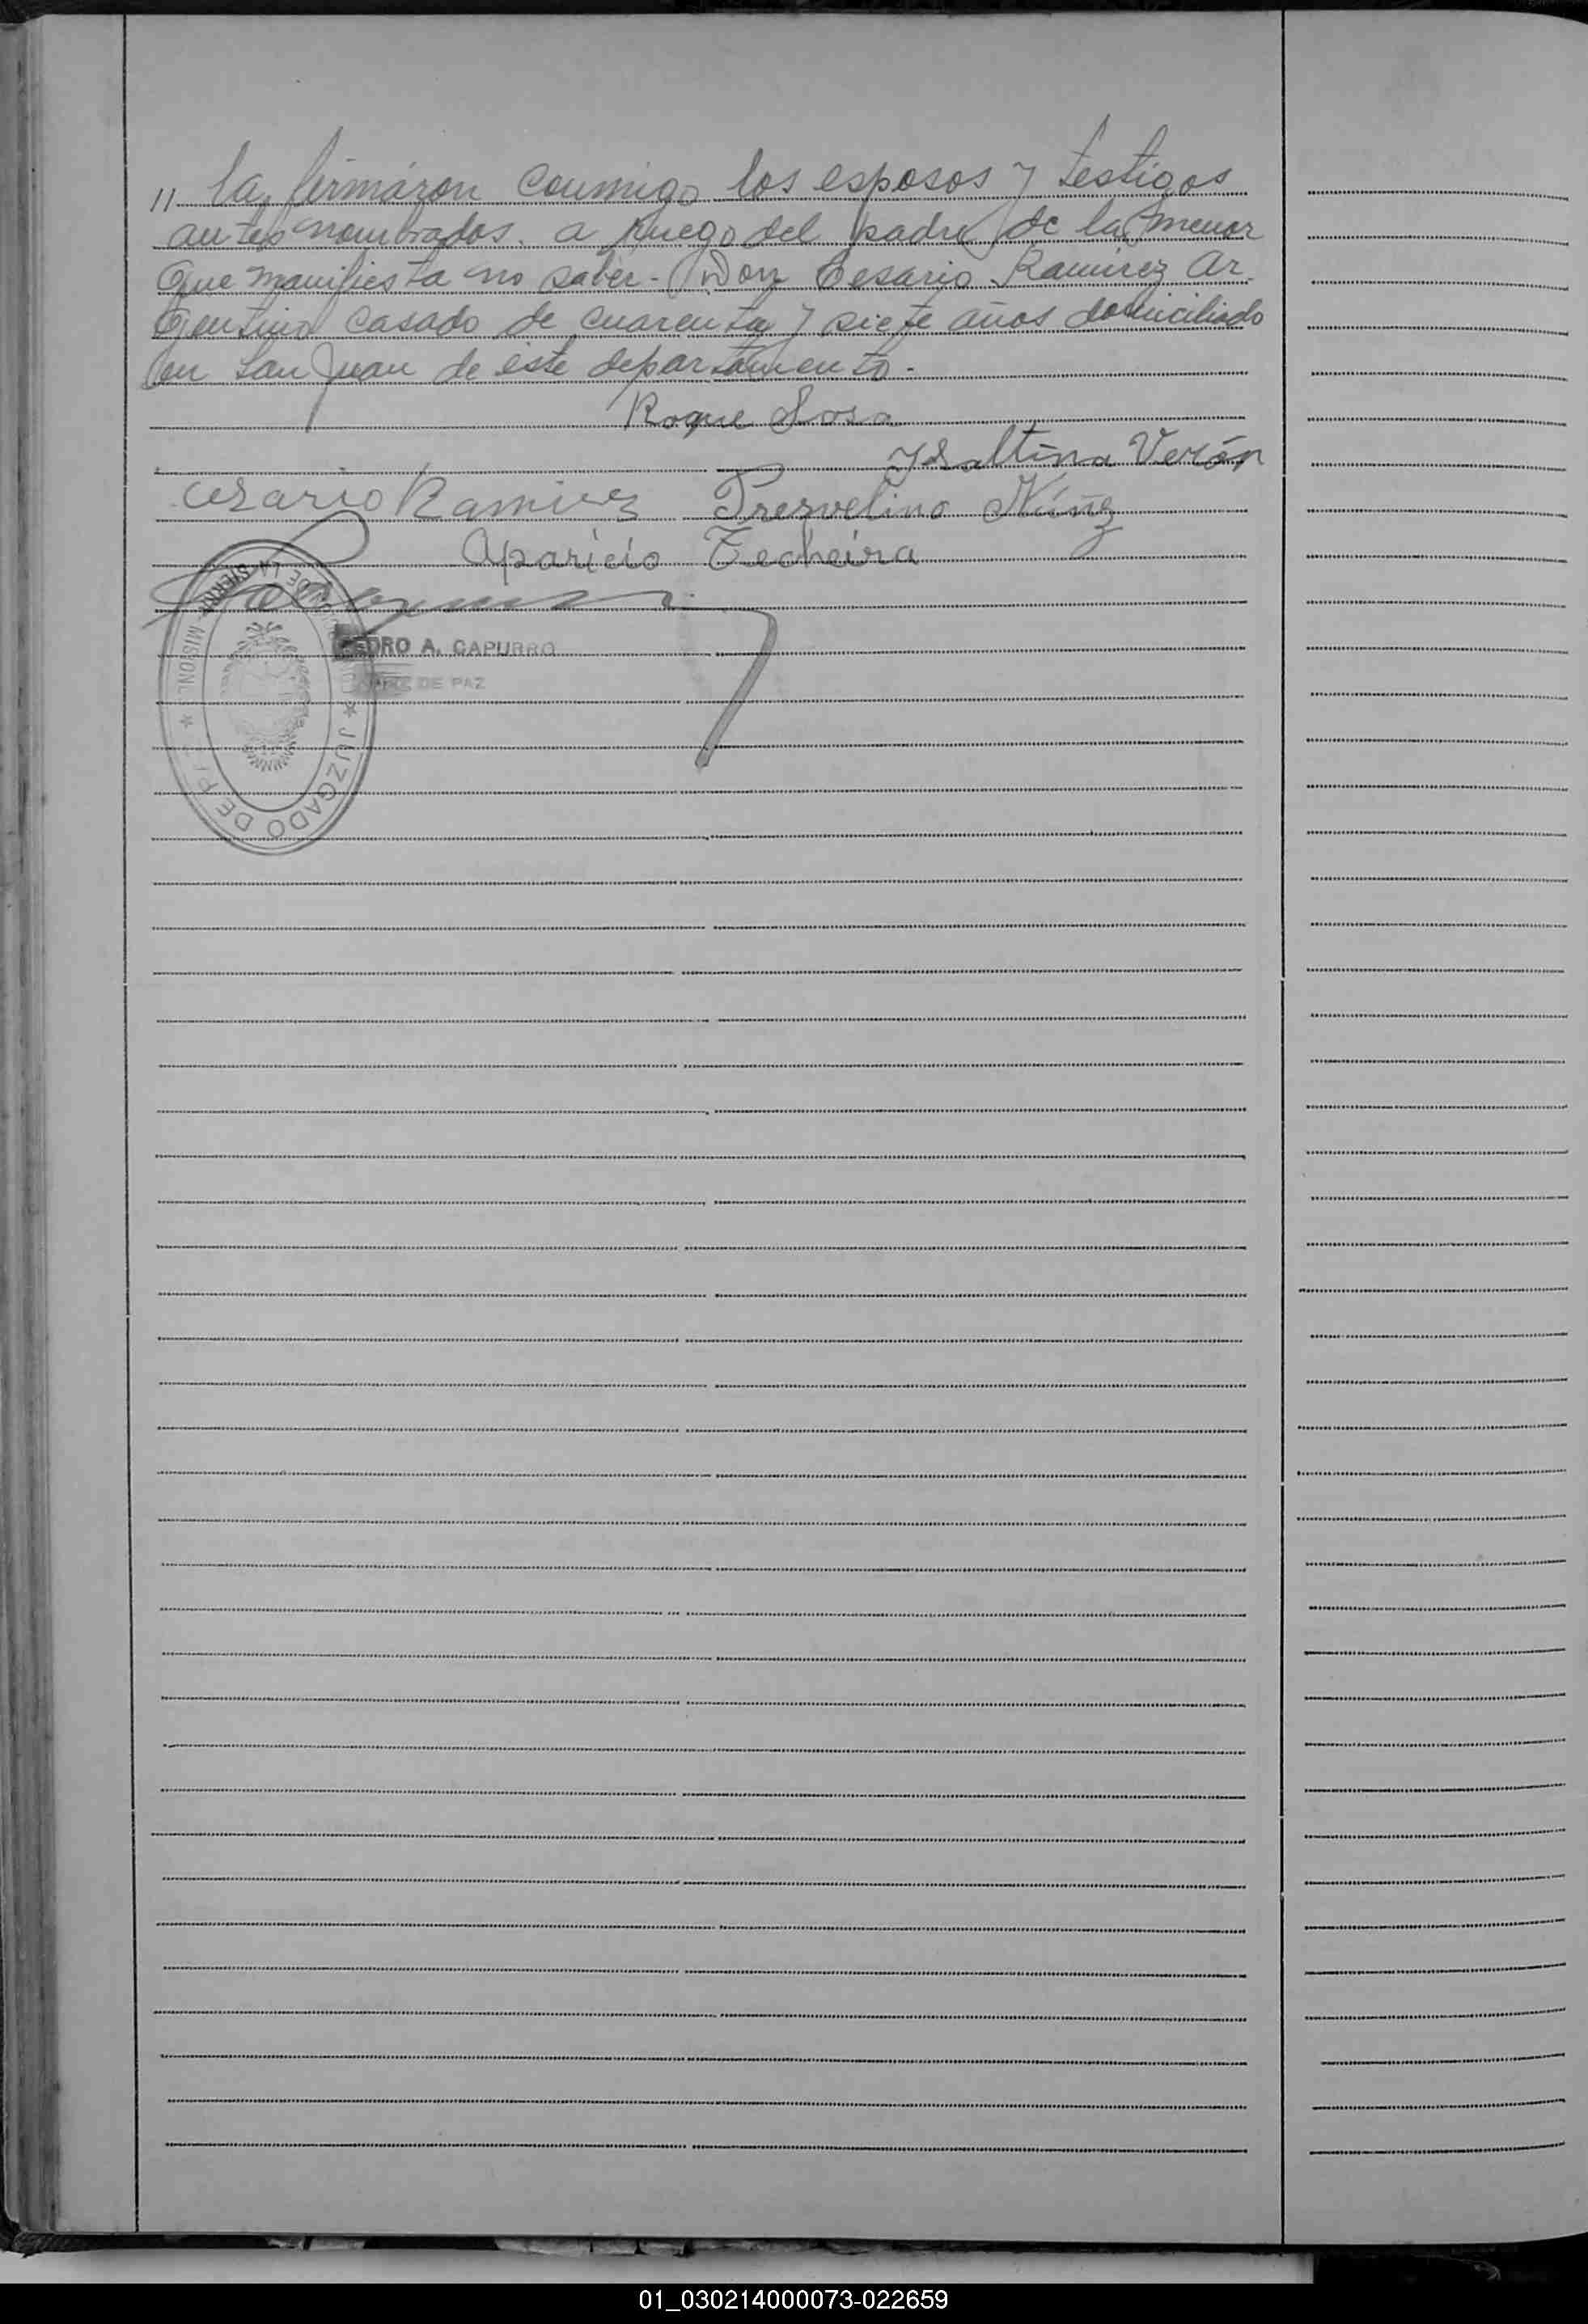 " la firmáron conmigo los esposos y testigos
antes nombrados. a ruego del padre de la menor
que manifiesta no saber - Don Cesario Ramirez Ar-
gentino casado de cuarenta y siete años domiciliado
en San Juan de este departamento.-
Roque Sosa
Isaltina Verón
Cesario Ramirez Presvelino Núñez
Aparicio Techeira
PEDRO A. CAPURRO
JUEZ DE PAZ
JUZGADO DE PAZ
DE LA SIERRA
MISIONES
01_030214000073-022659